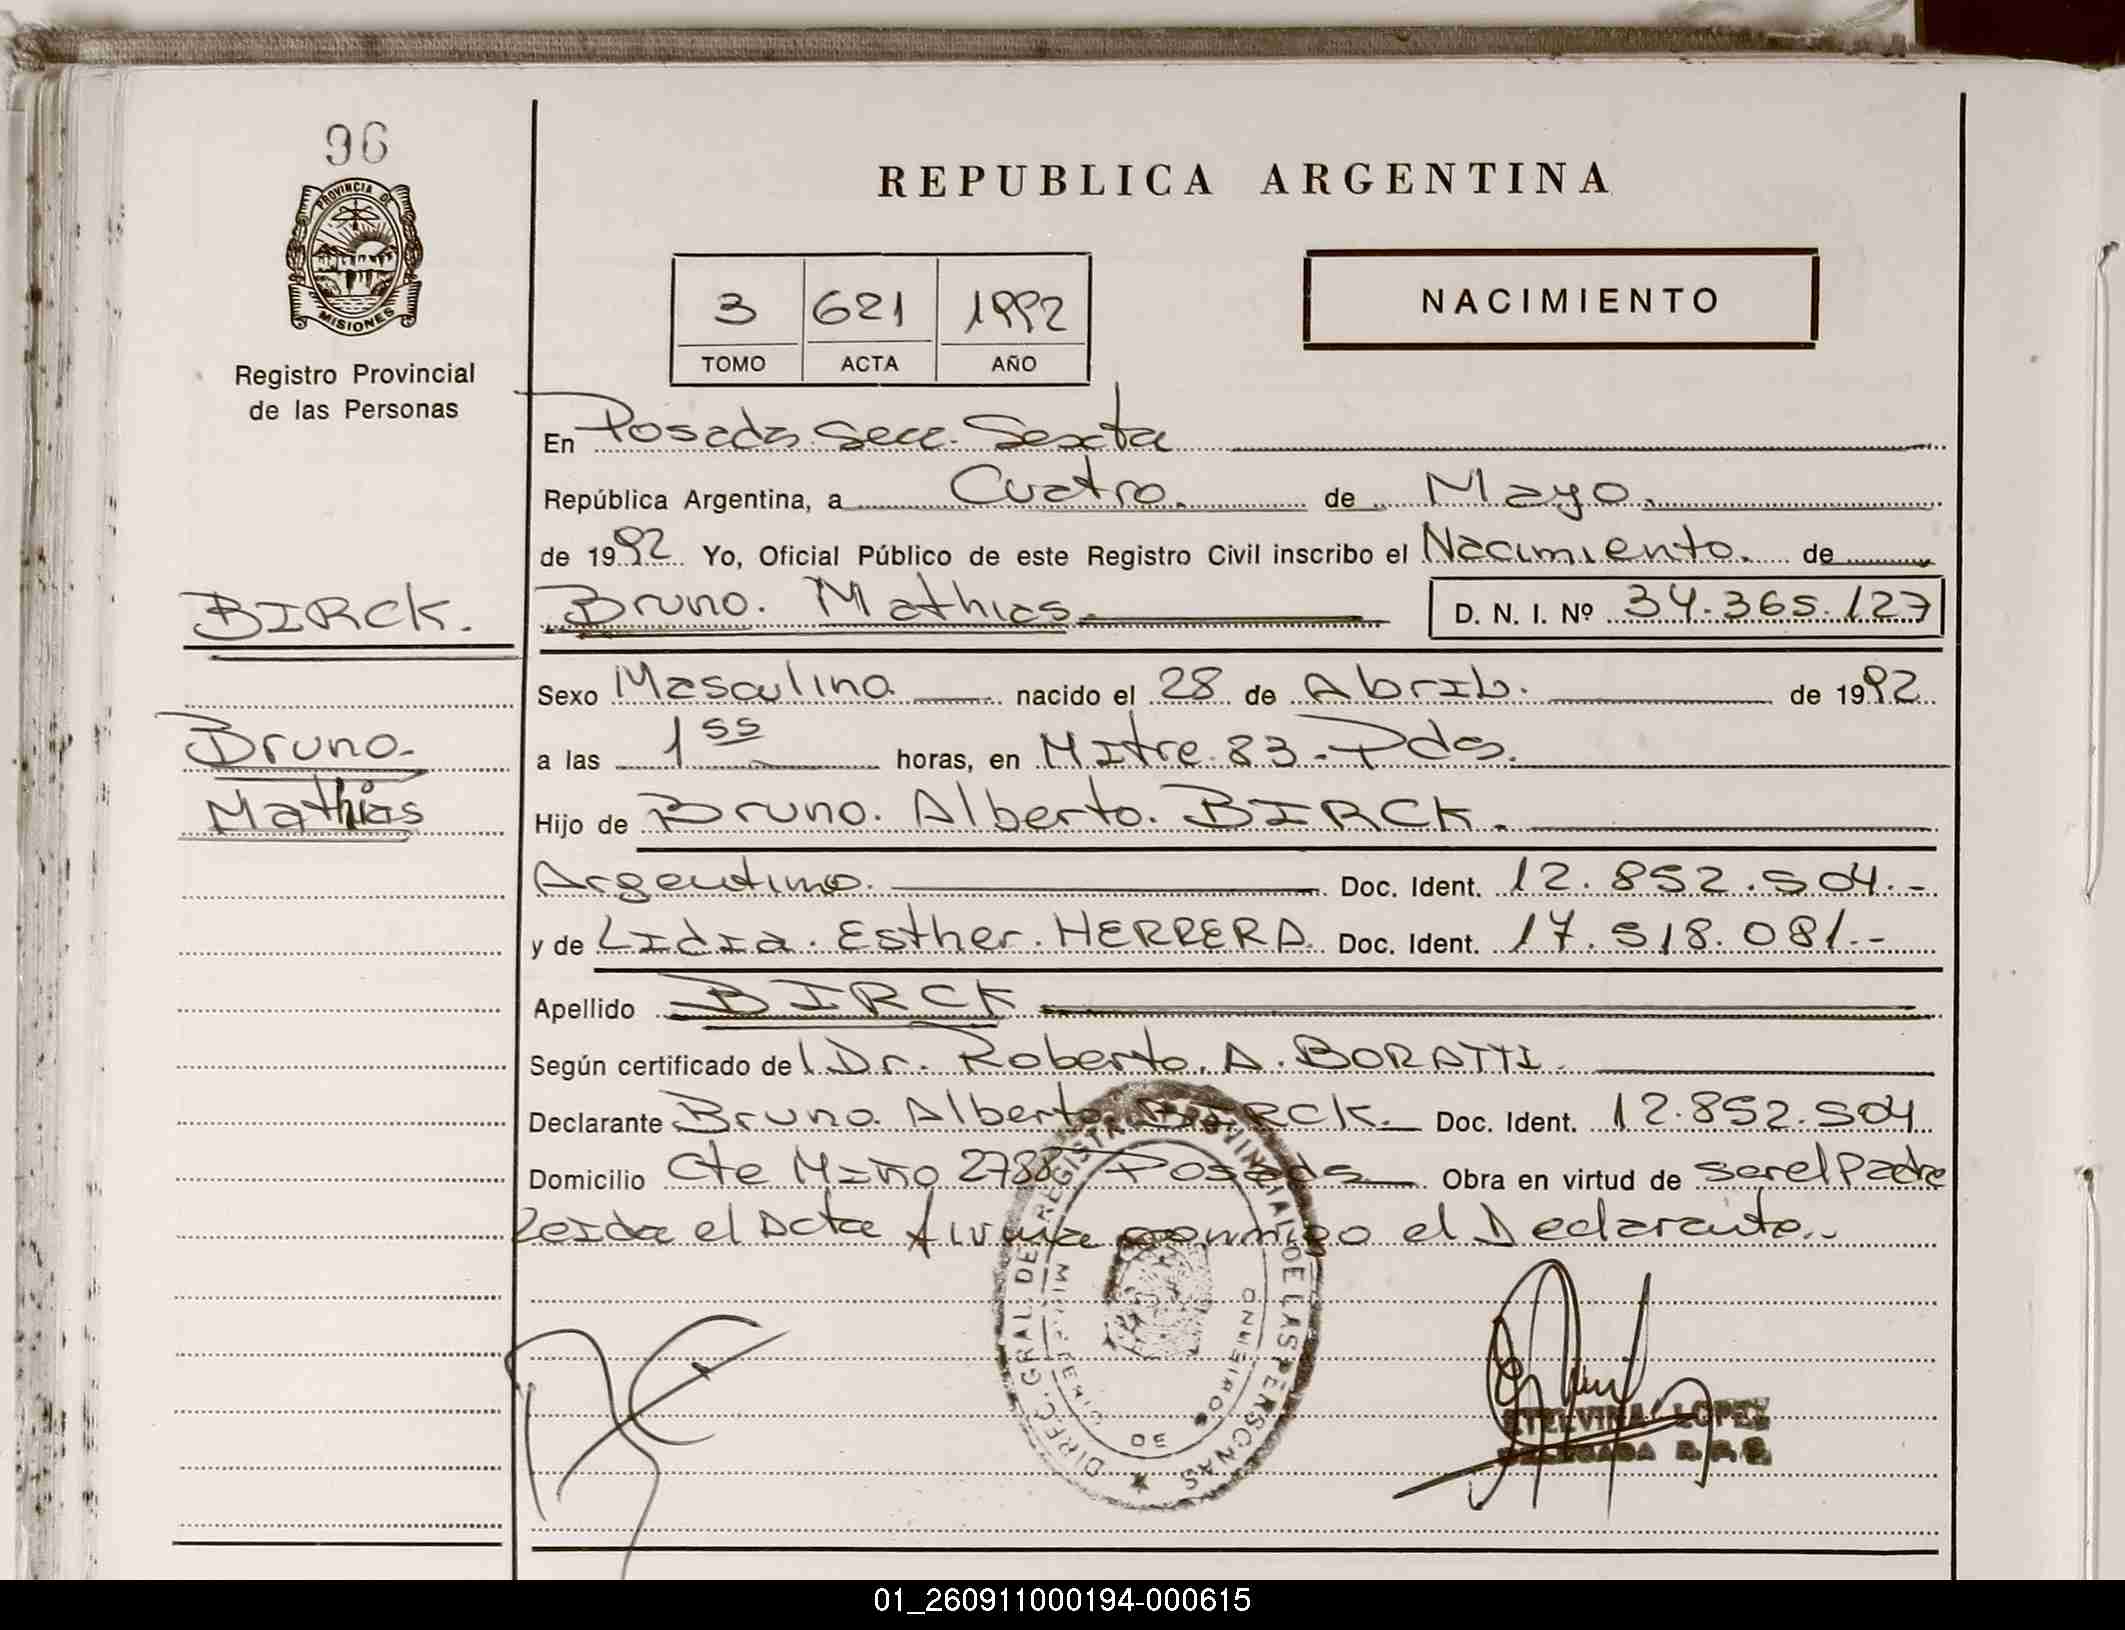 96
PROVINCIA DE
MISIONES
Registro Provincial
de las Personas
REPUBLICA ARGENTINA
3 621 1992
TOMO ACTA AÑO
NACIMIENTO
En Posadas Secc. Sexta
República Argentina, a Cuatro. de Mayo.
de 1992 Yo, Oficial Público de este Registro Civil inscribo el Nacimiento. de
BIRCK. Bruno. Mathias. D. N. I. Nº 34.365.127
Sexo Masculino nacido el 28 de Abril. de 1992
Bruno- a las 1 55 horas, en Mitre 83 - Pdas.
Mathias Hijo de Bruno. Alberto. BIRCK.
Argentino. Doc. Ident. 12.852.504.-
y de Lidia. Esther. HERRERA. Doc. Ident. 17.518.081.-
Apellido BIRCK
Según certificado del Dr. Roberto. A. BORATTI.
Declarante Bruno. Alberto BIRCK. Doc. Ident. 12.852.504
Domicilio Cte Miño 2788 Posadas Obra en virtud de ser el Padre
Leida el Acta firma conmigo el Declarante.-
DIREC. GRAL. DE REGISTRO PROVINCIAL DE LAS PERSONAS
DE
ETELVINA LOPEZ
DELEGADA R.P.P.
01_260911000194-000615